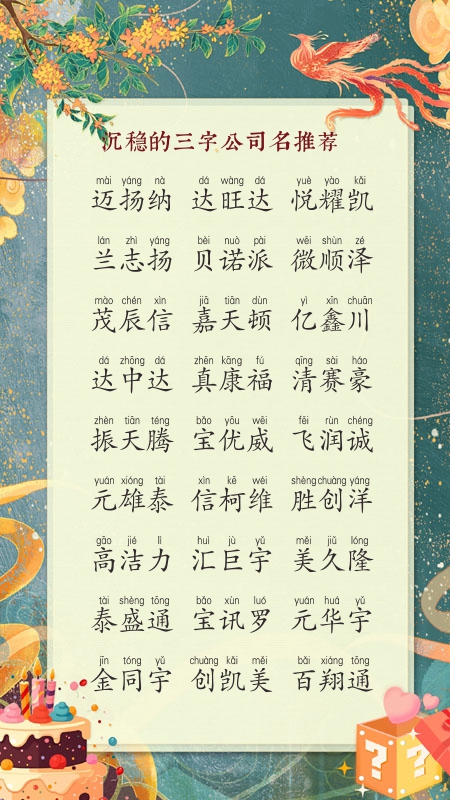 沉稳的三字公司名推荐
mài yáng nà dá wàng dá yuè yào kǎi
迈扬纳 达旺达 悦耀凯
lán zhì yáng bèi nuò pài wēi shùn zé
兰志扬 贝诺派 微顺泽
mào chén xìn jiā tiān dùn yì xīn chuān
茂辰信 嘉天顿 亿鑫川
dá zhōng dá zhēn kāng fú qīng sài háo
达中达 真康福 清赛豪
zhèn tiān téng bǎo yōu wēi fēi rùn chéng
振天腾 宝优威 飞润诚
yuán xióng tài xìn kē wéi shèng chuàng yáng
元雄泰 信柯维 胜创洋
gāo jié lì huì jù yǔ měi jiǔ lóng
高洁力 汇巨宇 美久隆
tài shèng tōng bǎo xùn luó yuán huá yǔ
泰盛通 宝讯罗 元华宇
jīn tóng yǔ chuàng kǎi měi bǎi xiáng tōng
金同宇 创凯美 百翔通
? ?